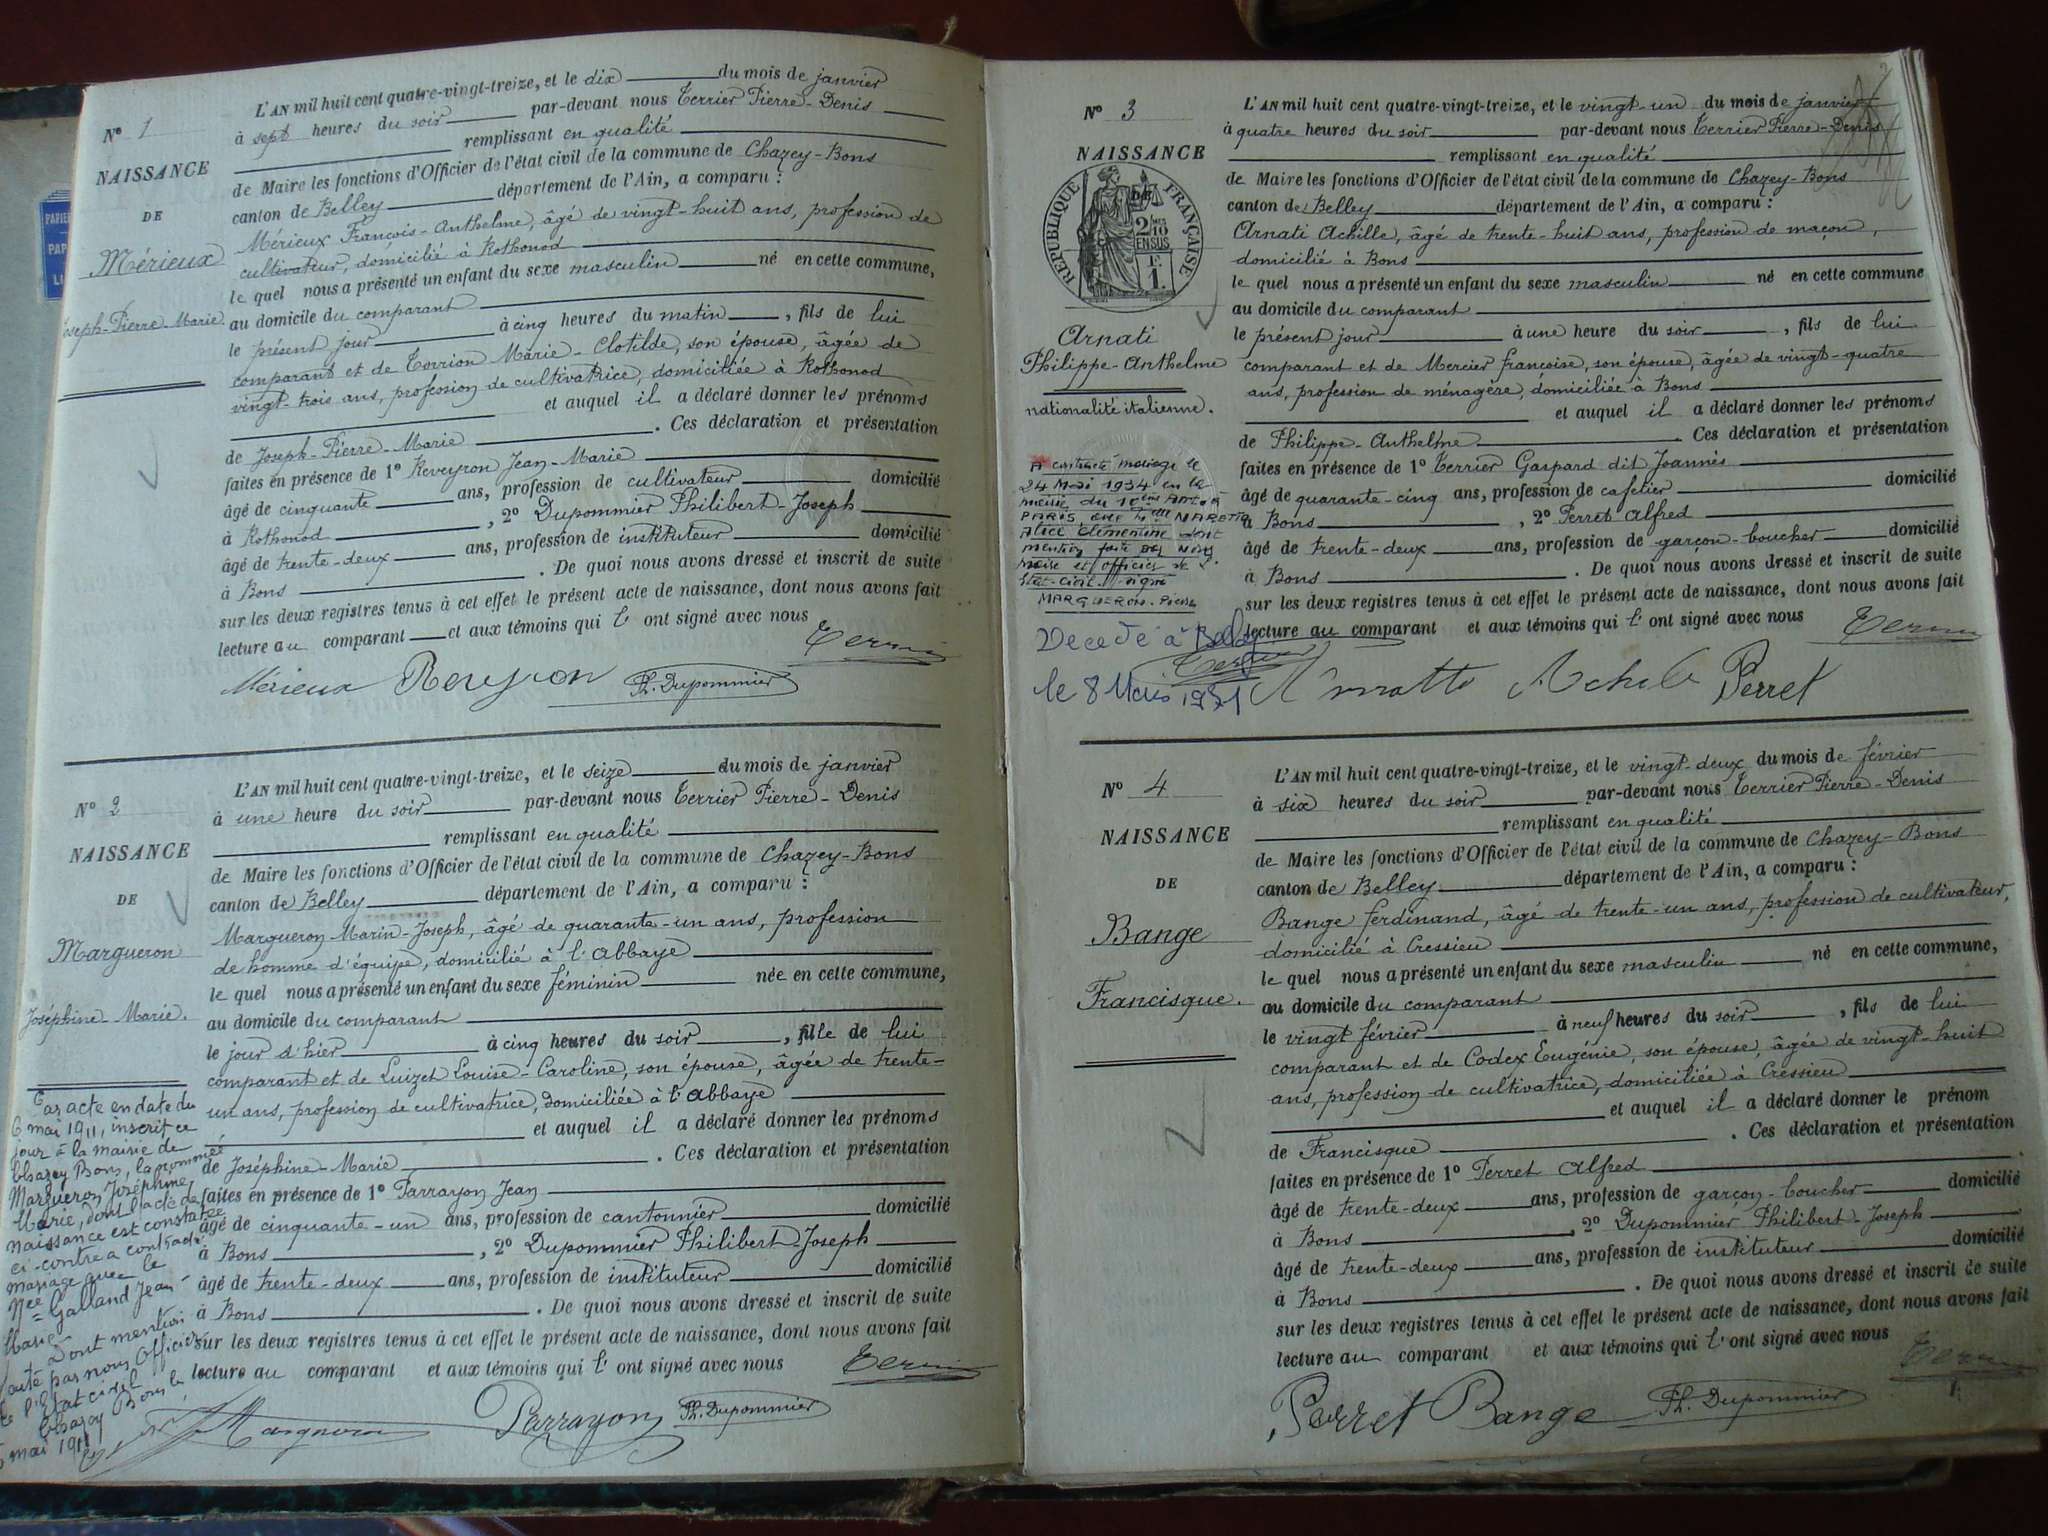 N° 1
NAISSANCE
DE
Mérieux
Joseph-Pierre-Marie
L'AN mil huit cent quatre-vingt-treize, et le dix du mois de janvier
à sept heures du soir par-devant nous Terrier Pierre-Denis
remplissant en qualité
de Maire les fonctions d'Officier de l'état civil de la commune de Chazey-Bons
canton de Belley département de l'Ain, a comparu :
Mérieux François-Anthelme, âgé de vingt-huit ans, profession de
cultivateur, domicilié à Rothonod
le quel nous a présenté un enfant du sexe masculin né en cette commune,
au domicile du comparant
le présent jour à cinq heures du matin, fils de lui
comparant et de Torrion Marie-Clotilde, son épouse, âgée de
vingt-trois ans, profession de cultivatrice, domiciliée à Rothonod
et auquel il a déclaré donner les prénoms
de Joseph-Pierre-Marie. Ces déclaration et présentation
faites en présence de 1° Reveyron Jean-Marie
âgé de cinquante ans, profession de cultivateur domicilié
à Rothonod, 2° Dupommier Philibert-Joseph
âgé de trente-deux ans, profession de instituteur domicilié
à Bons. De quoi nous avons dressé et inscrit de suite
sur les deux registres tenus à cet effet le présent acte de naissance, dont nous avons fait
lecture au comparant et aux témoins qui l' ont signé avec nous
Mérieux Ph. Dupommier
N° 2
NAISSANCE
DE
Margueron
Joséphine-Marie.
Par acte en date du
6 mai 1911, inscrit ce
jour à la mairie de
Chazey Bons, la nommée
Margueron Joséphine
Marie, dont l'acte de
naissance est constatée
ci-contre a contracté
mariage avec le
Galland Jean
Marie
Dont mention
faite par nous Officier
de l'Etat civil
Chazey Bons le
mai 1911
L'AN mil huit cent quatre-vingt-treize, et le seize du mois de janvier
à une heure du soir par-devant nous Terrier Pierre-Denis
remplissant en qualité
de Maire les fonctions d'Officier de l'état civil de la commune de Chazey-Bons
canton de Belley département de l'Ain, a comparu :
Margueron Marin-Joseph, âgé de quarante-un ans, profession
de homme d'équipe, domicilié à l'abbaye
le quel nous a présenté un enfant du sexe féminin née en cette commune,
au domicile du comparant
le jour d'hier à cinq heures du soir, fille de lui
comparant et de Luizet Louise-Caroline, son épouse, âgée de trente-
un ans, profession de cultivatrice, domiciliée à l'abbaye
et auquel il a déclaré donner les prénoms
de Joséphine-Marie. Ces déclaration et présentation
faites en présence de 1° Parrayon Jean
âgé de cinquante-un ans, profession de cantonnier domicilié
à Bons, 2° Dupommier Philibert-Joseph
âgé de trente-deux ans, profession de instituteur domicilié
à Bons. De quoi nous avons dressé et inscrit de suite
sur les deux registres tenus à cet effet le présent acte de naissance, dont nous avons fait
lecture au comparant et aux témoins qui l' ont signé avec nous
Margueron Parrayon Ph. Dupommier
N° 3
NAISSANCE
RÉPUBLIQUE FRANÇAISE
2/10
EN SUS
1.
Arnati
Philippe-Anthelme
nationalité italienne.
A contracté mariage le
24 Mai 1934 en la
mairie du
PARIS
Alice Clémentine dont
mention faite par Nous
Maire et officier de l'
Etat-civil
MARGUERON
Décédé à
le 8
L'AN mil huit cent quatre-vingt-treize, et le vingt-un du mois de janvier
à quatre heures du soir par-devant nous Terrier Pierre-Denis
remplissant en qualité
de Maire les fonctions d'Officier de l'état civil de la commune de Chazey-Bons
canton de Belley département de l'Ain, a comparu :
Arnati Achille, âgé de trente-huit ans, profession de maçon,
domicilié à Bons
le quel nous a présenté un enfant du sexe masculin né en cette commune
au domicile du comparant
le présent jour à une heure du soir, fils de lui
comparant et de Mercier françoise, son épouse, âgée de vingt-quatre
ans, profession de ménagère, domiciliée à Bons
et auquel il a déclaré donner les prénoms
de Philippe-Anthelme. Ces déclaration et présentation
faites en présence de 1° Terrier Gaspard dit Joannès
âgé de quarante-cinq ans, profession de cafetier domicilié
à Bons, 2° Perret Alfred
âgé de trente-deux ans, profession de garçon-boucher domicilié
à Bons. De quoi nous avons dressé et inscrit de suite
sur les deux registres tenus à cet effet le présent acte de naissance, dont nous avons fait
lecture au comparant et aux témoins qui l' ont signé avec nous
Perret
N° 4
NAISSANCE
DE
Bange
Francisque.
L'AN mil huit cent quatre-vingt-treize, et le vingt-deux du mois de février
à six heures du soir par-devant nous Terrier Pierre-Denis
remplissant en qualité
de Maire les fonctions d'Officier de l'état civil de la commune de Chazey-Bons
canton de Belley département de l'Ain, a comparu :
Bange Ferdinand, âgé de trente-un ans, profession de cultivateur,
domicilié à Cressieu
le quel nous a présenté un enfant du sexe masculin né en cette commune,
au domicile du comparant
le vingt février à neuf heures du soir, fils de lui
comparant et de Codex Eugénie, son épouse, âgée de vingt-huit
ans, profession de cultivatrice, domiciliée à Cressieu
et auquel il a déclaré donner le prénom
de Francisque. Ces déclaration et présentation
faites en présence de 1° Perret Alfred
âgé de trente-deux ans, profession de garçon-boucher domicilié
à Bons, 2° Dupommier Philibert-Joseph
âgé de trente-deux ans, profession de instituteur domicilié
à Bons. De quoi nous avons dressé et inscrit de suite
sur les deux registres tenus à cet effet le présent acte de naissance, dont nous avons fait
lecture au comparant et aux témoins qui l' ont signé avec nous
Perret Bange Ph. Dupommier